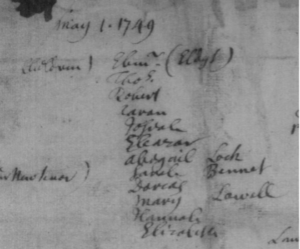 May 1. 1749
Ebenr. (Eldest)
Thos.
Robert
Aaron
Josiah
Eleazar
Abagail Lock
Sarah Bennet
Dorcas
Mary Lowell
Hannah
Elizabeth